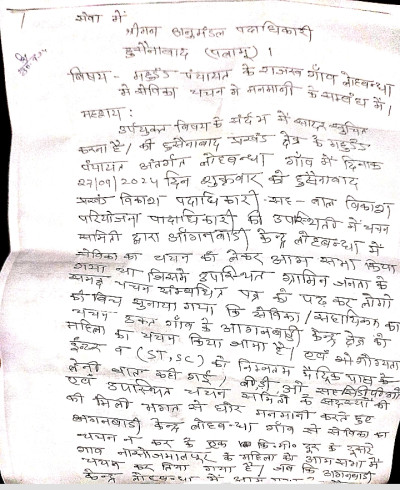 सेवा में
श्रीमान अनुमंडल पदाधिकारी
हुसैनाबाद (पलामू) ।
विषय - महुडंड पंचायत के राजस्व गाँव लोहबन्धा
में सेविका चयन में मनमानी के सम्बंध में।
महाशय :
उपर्युक्त विषय के संदर्भ में सादर सूचित
करना है / की हुसैनाबाद प्रखंड क्षेत्र के महुडंड
पंचायत अंतर्गत लोहबन्धा गाँव में दिनांक
27/09/2024 दिन शुक्रवार को हुसैनाबाद
प्रखंड विकास पदाधिकारी - सह - बाल विकास
परियोजना पदाधिकारी की उपस्थिती में चयन
समिती द्वारा आँगनबाड़ी केन्द्र लोहबन्धा में
सेविका का चयन को लेकर आम सभा किया
गया था जिसमें उपस्थित ग्रामिन जनता के
समक्ष चयन सम्बंधित पत्र को पढ़ कर लोगों
को बिच सुनाया गया कि सेविका / सहायिका का
चयन उक्त गाँव के आंगनबाड़ी केन्द्र क्षेत्र की
महिला का चयन किया जाना है / एवं शै० योग्यता
ईन्टर व (ST, SC) को निम्नतम मैट्रिक पास के
लेनी बात कही गई / बीडीओ सह
एवं उपस्थित चयन समिति के सदस्यों की
की मिली भगत से घोर मनमानी करते हुए
आंगनबाड़ी केन्द्र लोहबन्धा गाँव से सेविका का
चयन न कर के एक कि० मी० दूर के दूसरे
गाँव के महिला को आमसभा में
चयन कर लिया गया है / जब कि आंगनबाड़ी
केन्द्र लोहबन्धा में